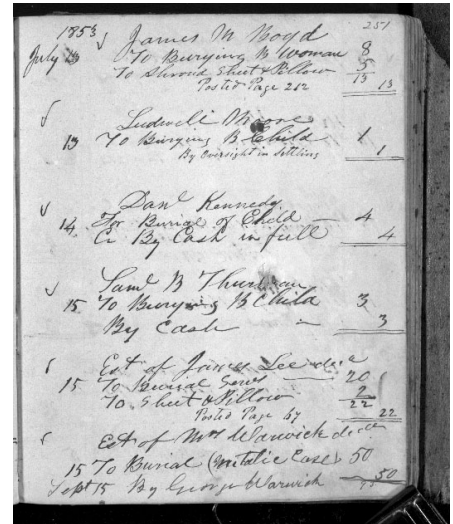 251
1853 James M Boyd
July 13 To Burying B Woman 8
To Shroud Sheet & Pillow 5
Posted Page 212 13 13
Ludwell Moore
13 To Burying B Child 1
By Oversight in Settling 1
Danl Kennedy
14 For Burial of Child — 4
Cr By Cash in full 4
Saml B Thurman
15 To Burying B Child 3
By Cash — 3
Est of James Lee decd
15 To Burial Serves — 20
To Sheet & Pillow 2
Posted Page 67 22 22
Est of Mrs Warwick decd
15 To Burial (Metalic Case) 50
Sept 15 By George Warwick 50